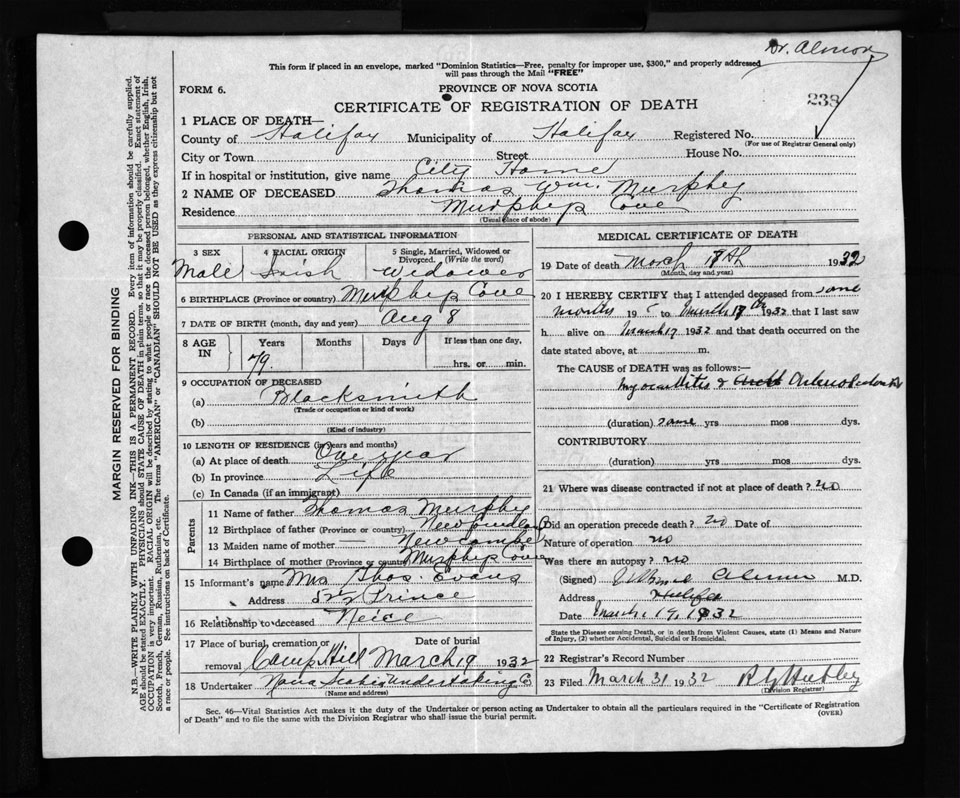 Dr. Almon
This form if placed in an envelope, marked "Dominion Statistics—Free, penalty for improper use, $300," and properly addressed
will pass through the Mail "FREE"
FORM 6.
PROVINCE OF NOVA SCOTIA
238
CERTIFICATE OF REGISTRATION OF DEATH
1 PLACE OF DEATH—
County of Halifax Municipality of Halifax Registered No.
(For use of Registrar General only)
City or Town Street House No.
If in hospital or institution, give name City Home
2 NAME OF DECEASED Thomas Wm. Murphy
Residence Murphys Cove
(Usual place of abode)
PERSONAL AND STATISTICAL INFORMATION
3 SEX 4 RACIAL ORIGIN 5 Single, Married, Widowed or
Divorced. (Write the word)
Male Irish Widower
6 BIRTHPLACE (Province or country) Murphys Cove
7 DATE OF BIRTH (month, day and year) Aug 8
8 AGE IN Years Months Days If less than one day,
79. hrs. or min.
9 OCCUPATION OF DECEASED
(a) Blacksmith
(Trade or occupation or kind of work)
(b)
(Kind of industry)
10 LENGTH OF RESIDENCE (in years and months)
(a) At place of death One year
(b) In province Life
(c) In Canada (if an immigrant)
Parents
11 Name of father Thomas Murphy
12 Birthplace of father (Province or country) Newfoundland
13 Maiden name of mother Newcombe
14 Birthplace of mother (Province or country) Murphys Cove
15 Informant's name Mrs Thos. Evans
Address Prince
16 Relationship to deceased Neice
17 Place of burial, cremation or Date of burial
removal Camp Hill March 19 1932
18 Undertaker Nova Scotia Undertaking Co
(Name and address)
MEDICAL CERTIFICATE OF DEATH
19 Date of death March 18th 1932
(Month, day and year)
20 I HEREBY CERTIFY that I attended deceased from some
months 19 to March 18th 1932 that I last saw
h alive on March 17 1932 and that death occurred on the
date stated above, at m.
The CAUSE of DEATH was as follows:—
myocarditis &
(duration) some yrs mos dys.
CONTRIBUTORY
(duration) yrs mos dys.
21 Where was disease contracted if not at place of death? no
Did an operation precede death? no Date of
Nature of operation no
Was there an autopsy? no
(Signed) Almon M.D.
Address Halifax
Date March 19, 1932
State the Disease causing Death, or in death from Violent Causes, state (1) Means and Nature
of Injury, (2) whether Accidental, Suicidal or Homicidal.
22 Registrar's Record Number
23 Filed March 31 1932
(Division Registrar)
Sec. 46—Vital Statistics Act makes it the duty of the Undertaker or person acting as Undertaker to obtain all the particulars required in the "Certificate of Registration
of Death" and to file the same with the Division Registrar who shall issue the burial permit.
(OVER)
MARGIN RESERVED FOR BINDING
N.B.—WRITE PLAINLY WITH UNFADING INK—THIS IS A PERMANENT RECORD. Every item of information should be carefully supplied.
AGE should be stated EXACTLY. PHYSICIANS should STATE CAUSE OF DEATH in plain terms, so that it may be properly classified. Exact statement of
OCCUPATION is very important. RACIAL ORIGIN will be described by stating to what people or race the deceased person belonged, whether English, Irish,
Scotch, French, German, Russian, Ruthenian, etc. The terms "AMERICAN" or "CANADIAN" SHOULD NOT BE USED as they express citizenship but not
a race or people. See instructions on back of Certificate.